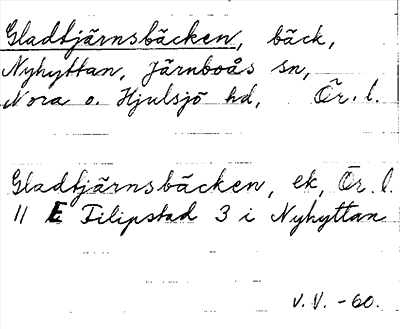 Gladtjärnsbäcken, bäck,
Nyhyttan, Järnboås sn,
Nora o. Hjulsjö hd, Ör. l.
Gladtjärnsbäcken, ek, Ör. l.
11 E Filipstad 3 i Nyhyttan
V. V. -60.